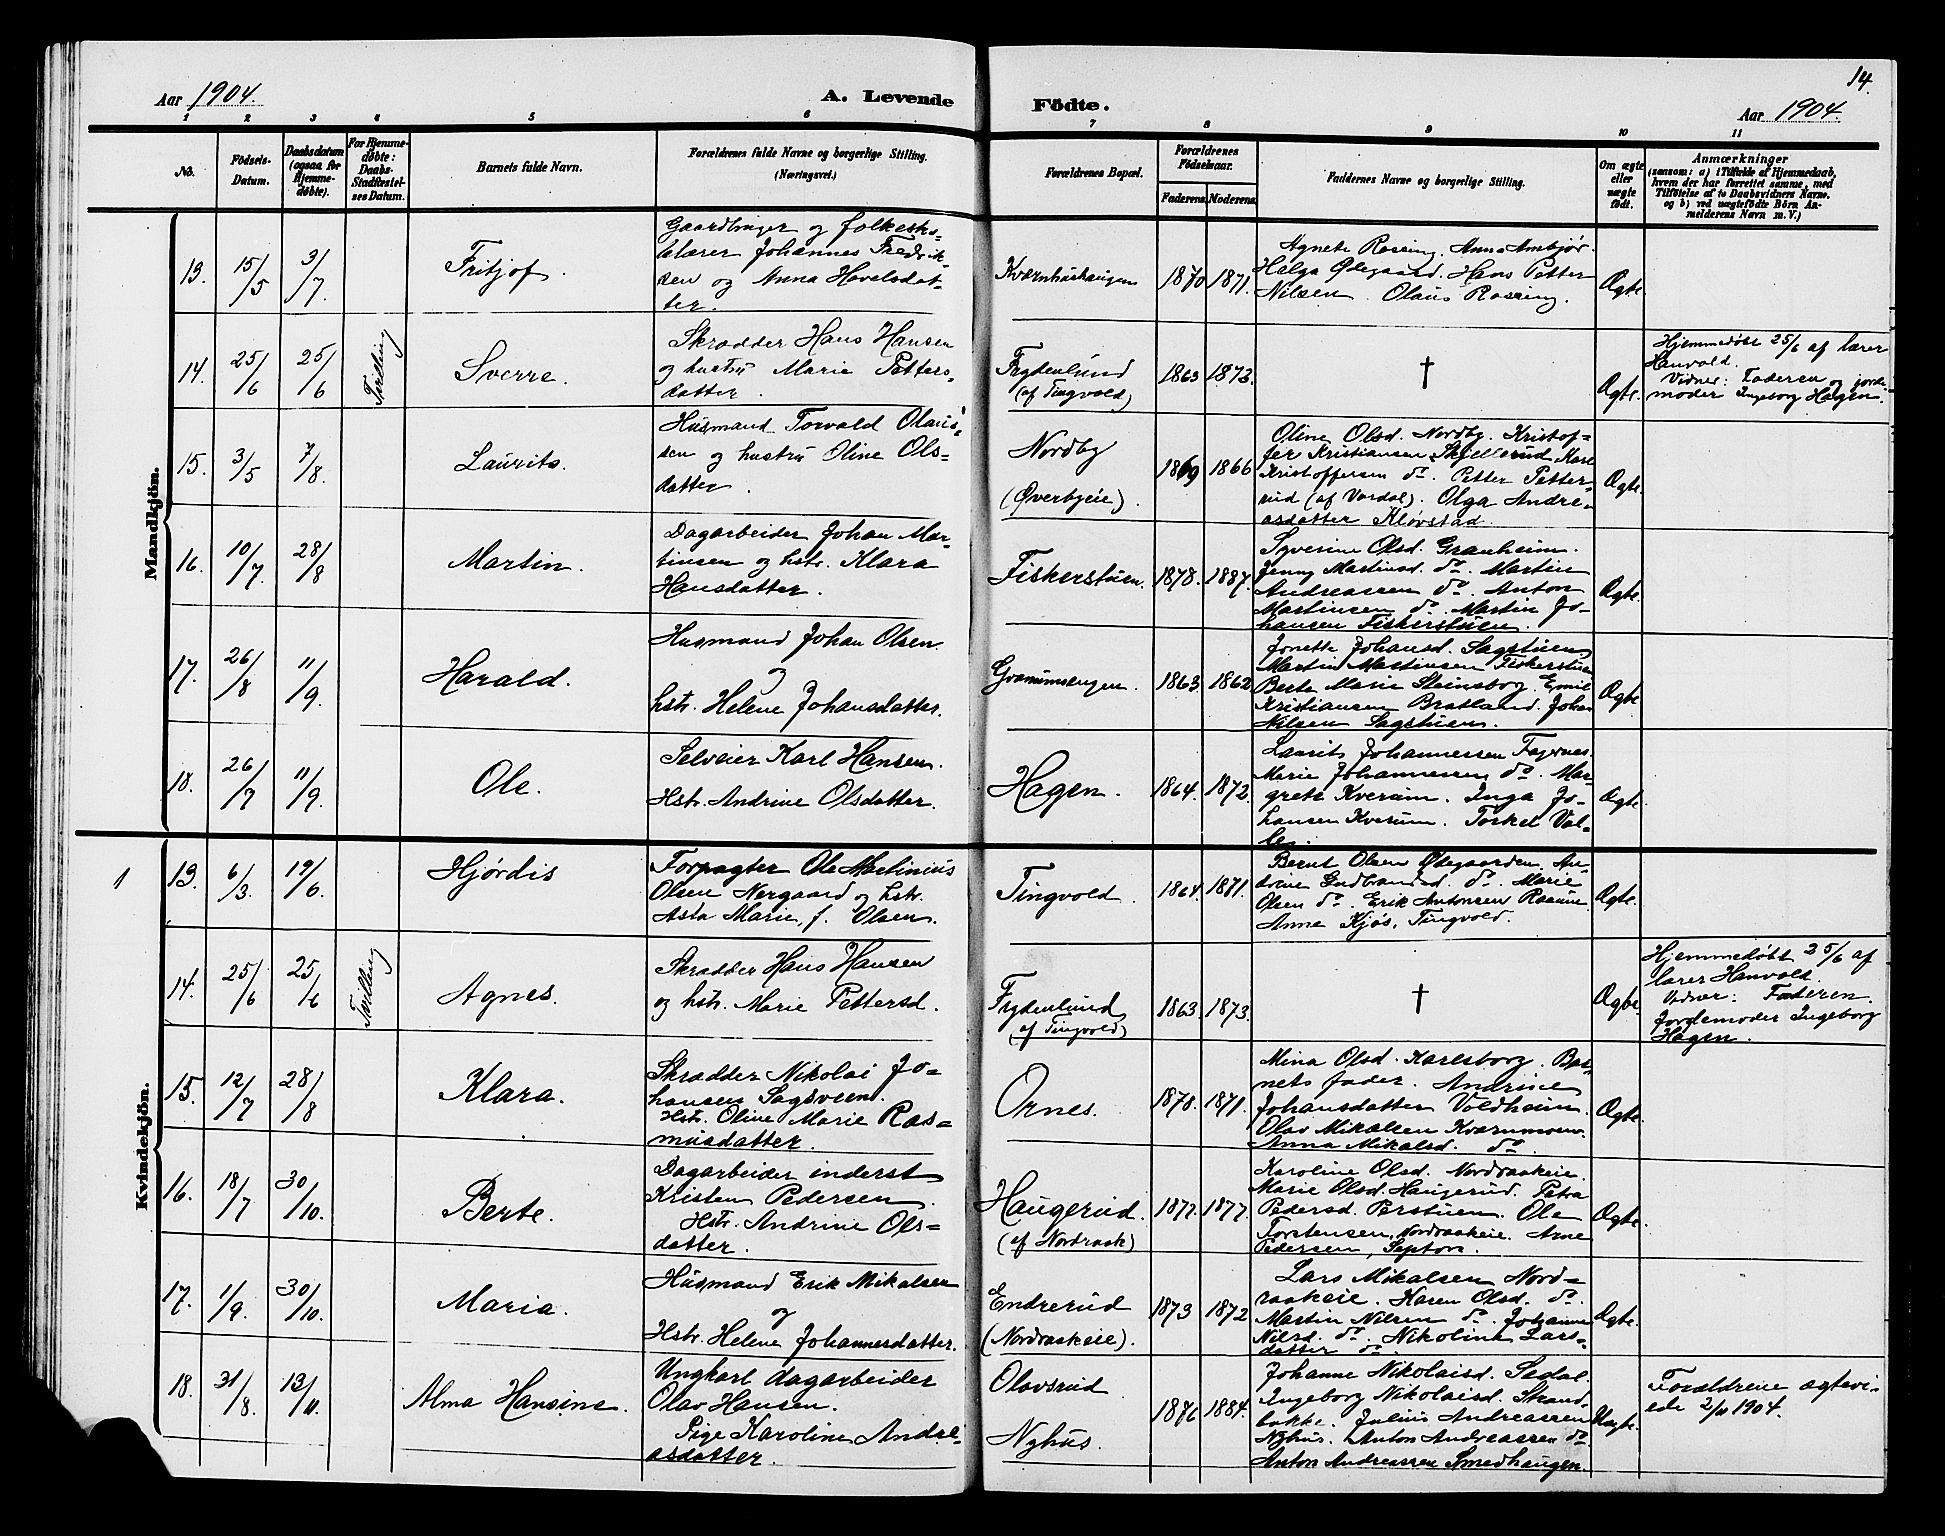 14.
Aar 1904.
A. Levende Födte.
Aar 1904.
1 2 3 4 5 6 7 8 9 10 11
No.
Födsels-
Datum.
Daabsdatum
(ogsaa for
Hjemme-
døbte).
For Hjemme-
døbte:
Daabs-
Stadfæstel-
ses Datum.
Barnets fulde Navn.
Forældrenes fulde Navne og borgerlige Stilling.
(Næringsvei.)
Forældrenes Bopæl.
Forældrenes
Födselsaar.
Faderens. Moderens.
Faddernes Navne og borgerlige Stilling.
Om ægte
eller
uægte
født.
Anmærkninger
(saasom: a) i Tilfælde af Hjemmedaab,
hvem der har forrettet samme, med
Tilføielse af to Daabsvidners Navne.
og b) ved uægtefödte Börn An-
melderens Navn m. V.)
Mandkjön.
13. 15/5 3/7 Fritjof.
Gaardbruger og folkesko-
lelærer Johannes Fredrik-
sen og Anna Hovelsdat-
ter.
Kværnhushaugen 1870 1871.
Agnete Rossing. Anna Ambjør.
Helga Ødegaard. Hans Petter
Nilsen. Olaus Rossing.
Ægte.
14. 25/6 25/6 Tvilling Sverre.
Skrædder Hans Hansen
og hustru Marie Petters-
datter.
Frydenlund
(af Tingvold)
1863 1873.
†
Ægte.
Hjemmedøbt 25/6 af lærer
Hanvold.
Vidner: Faderen og jorde-
moder Ingeborg Hagen.
15. 3/5 7/8 Laurits.
Husmand Torvald Olaus-
sen og hustru Oline Ols-
datter.
Nordby
(Øverbyeie).
1869 1866
Oline Olsd. Nordby. Kristof-
fer Kristiansen Skjellerud. Karl
Kristoffersen do. Petter Petter-
rud (af Vardal). Olga Andre-
asdatter Kløvstad.
Ægte.
16. 10/7. 28/8 Martin.
Dagarbeider Johan Mar-
tinsen og hstr. Klara
Hansdatter.
Fiskerstuen. 1878. 1887.
Syverine Olsd. Granheim.
Jenny Martinsd. do. Martin
Andreassen do. Anton
Martinsen do. Martin Jo-
hansen Fiskerstuen.
Ægte.
17. 26/8 11/9 Harald.
Husmand Johan Olsen
og
hstr. Helene Johansdatter.
1863. 1862.
Jonette Johansd. Sagstuen
Martin Martinsen Fiskerstuen
Berte Marie Steinsborg. Emil
Kristiansen Bratland. Johan
Nilsen Sagstuen.
Ægte
18. 26/7 11/9. Ole.
Selveier Karl Hansen.
Hstr. Andrine Olsdatter.
Hagen. 1864. 1872.
Laurits Johannessen Fagernes.
Marie Johannessen do. Mar-
grete Kverum. Inga Jo-
hansen Kverum. Torkel Val-
le.
Ægte.
Kvindekjön.
1
13. 6/3. 19/6. Hjørdis
Forpagter Ole Martinius
Olsen Nergaard og hstr.
Asta Marie, f. Olsen.
Tingvold. 1864. 1871.
Bernt Olsen Ødegaarden. An-
drine Gudbrandsd. do. Marie
Olsen do. Erik Antonsen
Anna Kjøs, Tingvold.
Ægte.
14. 25/6 25/6 Tvilling Agnes.
Skrædder Hans Hansen
og hstr. Marie Pettersd.
Frydenlund
(af Tingvold)
1863. 1873.
†
Ægte.
Hjemmedøbt 25/6 af
lærer Hanvold.
Vidner: Faderen.
Jordemoder Ingeborg
Hagen.
15. 12/7 28/8 Klara.
Skrædder Nikolai Jo-
hansen Sagsveen.
Hstr. Oline Marie Ras-
musdatter.
Ornes. 1878. 1871.
Mina Olsd. Karlsborg. Bar-
nets fader. Andrine
Johansdatter Voldheim.
Olav Mikalsen Kværnmoen.
Anna Mikalsd. do.
Ægte.
16. 18/7 30/10. Berte.
Dagarbeider inderst
Kristen Pedersen.
Hstr. Andrine Ols-
datter.
Haugerud.
(af Nordraak)
1877. 1877.
Karoline Olsd. Nordraakeie.
Marie Olsd. Haugerud. Petra
Pedersd. Perstuen. Ole
Torstensen, Nordraakeie. Arne
Pedersen,
Ægte.
17. 1/9. 30/10. Maria.
Husmand Erik Mikalsen
og
Hstr. Helene Johannesdatter.
Endrerud
(Nordraakeie).
1873 1872
Lars Mikalsen Nord-
raakeie. Karen Olsd. do.
Martin Nilsen do. Johanne
Nilsd. do. Nikoline Lars-
datter do.
Ægte.
18. 31/8. 13/11. Alma Hansine.
Ungkarl dagarbeider
Olav Hansen.
Pige Karoline Andre-
asdatter.
Olavsrud
Nyhus.
1876 1884.
Johanne Nikolaisd. Sedal.
Ingeborg Nikolaisd. Strand-
bakke. Julius Andreassen
Nyhus. Anton Andreassen do.
Anton Andreassen Smedhaugen.
Uægte.
Forældrene ægtevi-
ede 2/11 1904.